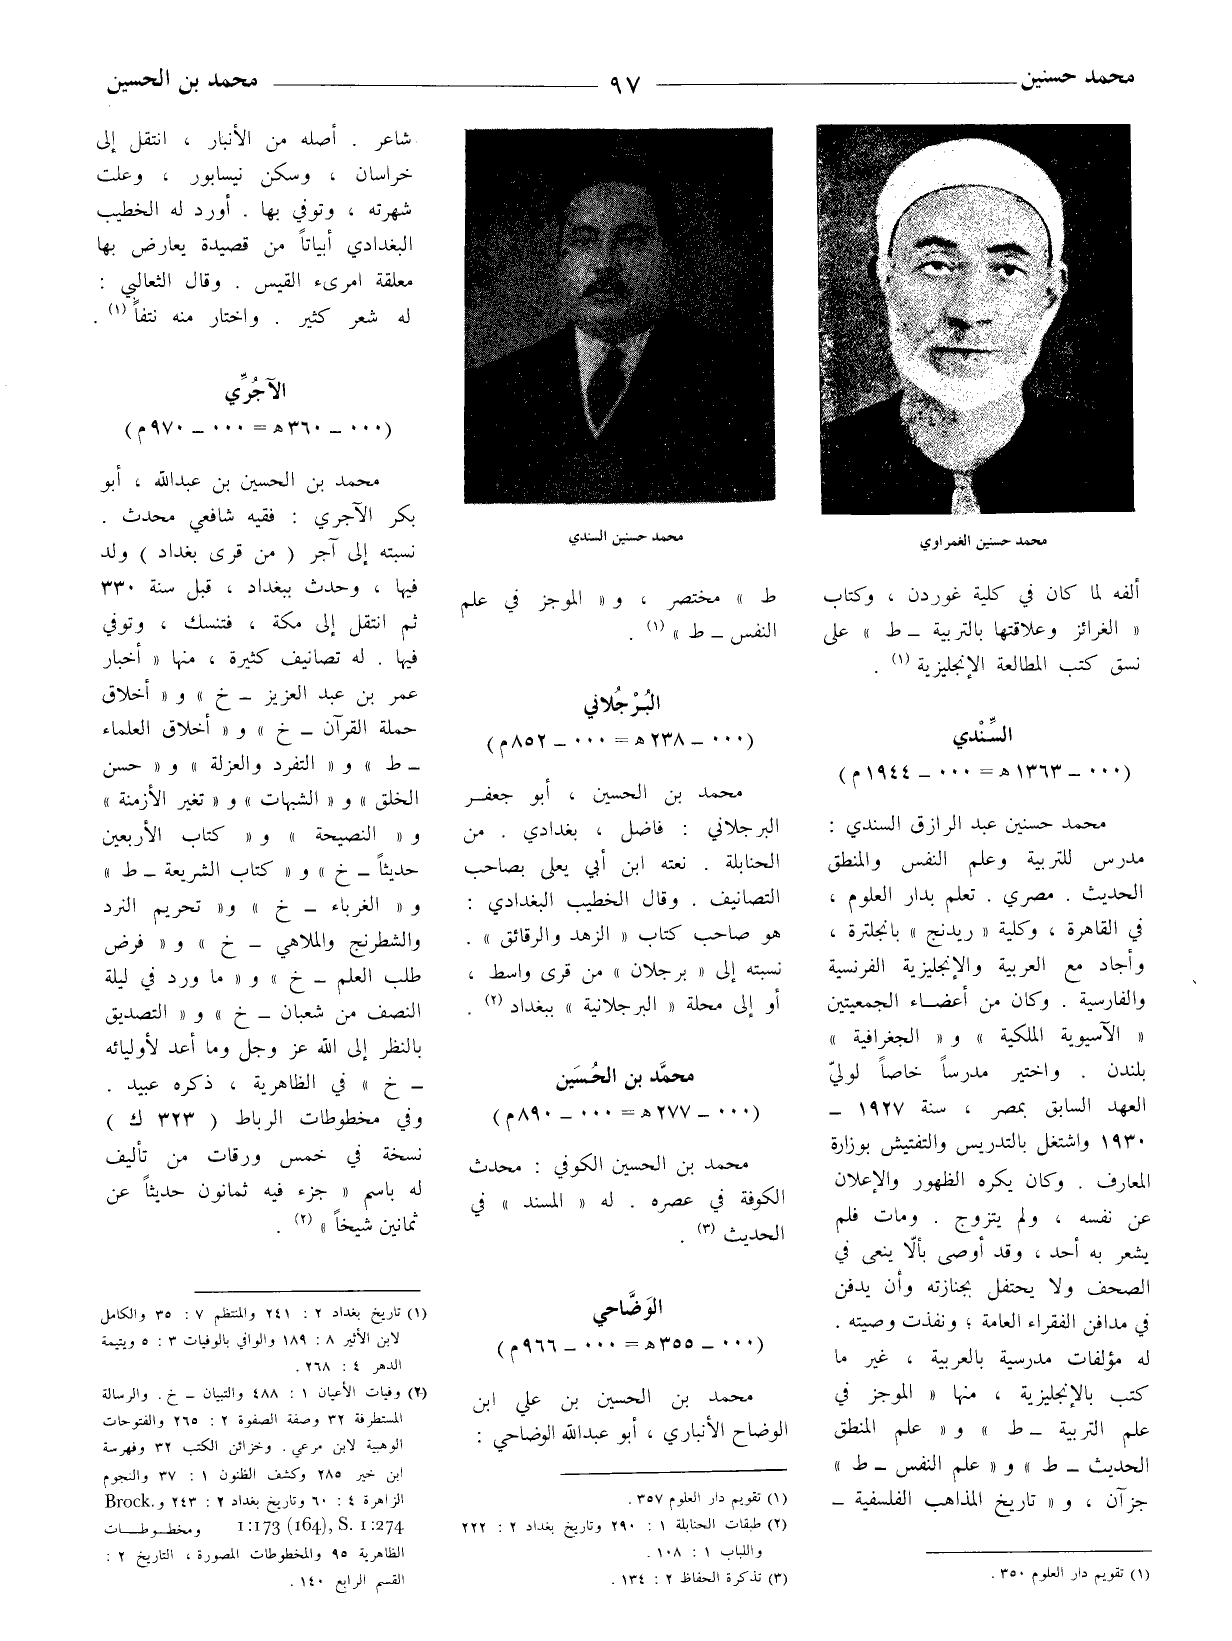 محمد حسنين
٩٧
محمد بن الحسين
محمد حسنين الغمراوي
ألفه لما كان في كلية غوردن ، وكتاب
« الغرائز وعلاقتها بالتربية ــ ط » على
نسق كتب المطالعة الإنجليزية (١) .
السِّنْدي
(٠٠٠ ــ ١٣٦٣ هـ = ٠٠٠ ــ ١٩٤٤ م)
محمد حسنين عبد الرازق السندي :
مدرس للتربية وعلم النفس والمنطق
الحديث . مصري . تعلم بدار العلوم ،
في القاهرة ، وكلية « ريدنج » بانجلترة ،
وأجاد مع العربية والإنجليزية الفرنسية
والفارسية . وكان من أعضاء الجمعيتين
« الآسيوية الملكية » و « الجغرافية »
بلندن . واختير مدرساً خاصاً لوليّ
العهد السابق بمصر ، سنة ١٩٢٧ ــ
١٩٣٠ واشتغل بالتدريس والتفتيش بوزارة
المعارف . وكان يكره الظهور والإعلان
عن نفسه ، ولم يتزوج . ومات فلم
يشعر به أحد ، وقد أوصى بألّا ينعى في
الصحف ولا يحتفل بجنازته وأن يدفن
في مدافن الفقراء العامة ؛ ونفذت وصيته .
له مؤلفات مدرسية بالعربية ، غير ما
كتب بالإنجليزية ، منها « الموجز في
علم التربية ــ ط » و « علم المنطق
الحديث ــ ط » و « علم النفس ــ ط »
جزآن ، و « تاريخ المذاهب الفلسفية ــ
(١) تقويم دار العلوم ٣٥٠ .
محمد حسنين السندي
ط » مختصر ، و « الموجز في علم
النفس ــ ط » (١) .
البُرْجُلاني
(٠٠٠ ــ ٢٣٨ هـ = ٠٠٠ ــ ٨٥٢ م)
محمد بن الحسين ، أبو جعفر
البرجلاني : فاضل ، بغدادي . من
الحنابلة . نعته ابن أبي يعلى بصاحب
التصانيف . وقال الخطيب البغدادي :
هو صاحب كتاب « الزهد والرقائق » .
نسبته إلى « برجلان » من قرى واسط ،
أو إلى محلة « البرجلانية » ببغداد (٢) .
محمَّد بن الحُسَين
(٠٠٠ ــ ٢٧٧ هـ = ٠٠٠ ــ ٨٩٠ م)
محمد بن الحسين الكوفي : محدث
الكوفة في عصره . له « المسند » في
الحديث (٣) .
الوَضَّاحي
(٠٠٠ ــ ٣٥٥ هـ = ٠٠٠ ــ ٩٦٦ م)
محمد بن الحسين بن علي ابن
الوضاح الأنباري ، أبو عبدالله الوضاحي :
(١) تقويم دار العلوم ٣٥٧ .
(٢) طبقات الحنابلة ١ : ٢٩٠ وتاريخ بغداد ٢ : ٢٢٢
واللباب ١ : ١٠٨ .
(٣) تذكرة الحفاظ ٢ : ١٣٤ .
شاعر . أصله من الأنبار ، انتقل إلى
خراسان ، وسكن نيسابور ، وعلت
شهرته ، وتوفي بها . أورد له الخطيب
البغدادي أبياتاً من قصيدة يعارض بها
معلقة امرىء القيس . وقال الثعالبي :
له شعر كثير . واختار منه نتفاً (١) .
الآجُرِّي
(٠٠٠ ــ ٣٦٠ هـ = ٠٠٠ ــ ٩٧٠ م)
محمد بن الحسين بن عبدالله ، أبو
بكر الآجري : فقيه شافعي محدث .
نسبته إلى آجر ( من قرى بغداد ) ولد
فيها ، وحدث ببغداد ، قبل سنة ٣٣٠
ثم انتقل إلى مكة ، فتنسك ، وتوفي
فيها . له تصانيف كثيرة ، منها « أخبار
عمر بن عبد العزيز ــ خ » و « أخلاق
حملة القرآن ــ خ » و « أخلاق العلماء
ــ ط » و « التفرد والعزلة » و « حسن
الخلق » و « الشبهات » و « تغير الأزمنة »
و « النصيحة » و « كتاب الأربعين
حديثاً ــ خ » و « كتاب الشريعة ــ ط »
و « الغرباء ــ خ » و« تحريم النرد
والشطرنج والملاهي ــ خ » و « فرض
طلب العلم ــ خ » و « ما ورد في ليلة
النصف من شعبان ــ خ » و « التصديق
بالنظر إلى الله عز وجل وما أعد لأوليائه
ــ خ » في الظاهرية ، ذكره عبيد .
وفي مخطوطات الرباط ( ٣٢٣ ك )
نسخة في خمس ورقات من تأليف
له باسم « جزء فيه ثمانون حديثاً عن
ثمانين شيخاً » (٢) .
(١) تاريخ بغداد ٢ : ٢٤١ والمنتظم ٧ : ٣٥ والكامل
لابن الأثير ٨ : ١٨٩ والوافي بالوفيات ٣ : ٥ ويتيمة
الدهر ٤ : ٢٦٨ .
(٢) وفيات الأعيان ١ : ٤٨٨ والتبيان ــ خ . والرسالة
المستطرفة ٣٢ وصفة الصفوة ٢ : ٢٦٥ والفتوحات
الوهبية لابن مرعي . وخزائن الكتب ٣٢ وفهرسة
ابن خير ٢٨٥ وكشف الظنون ١ : ٣٧ والنجوم
الزاهرة ٤ : ٦٠ وتاريخ بغداد ٢ : ٢٤٣ و Brock.
1:173 (164), S. 1:274 ومخطوطات
الظاهرية ٩٥ والمخطوطات المصورة ، التاريخ ٢ :
القسم الرابع ١٤٠ .